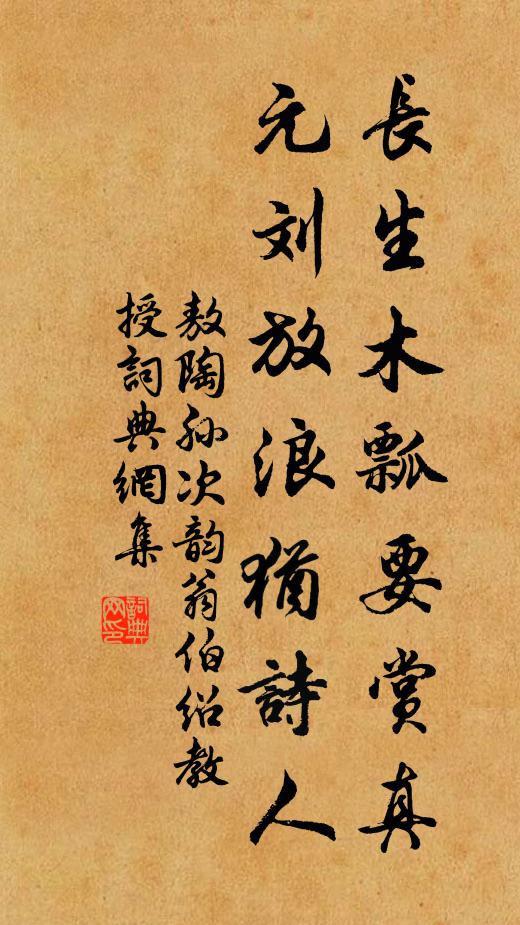 長生木瓢要賞真
元刘放浪猶詩人
敖陶孫次韵翁伯紹教
授詞典網集
詞典
网印